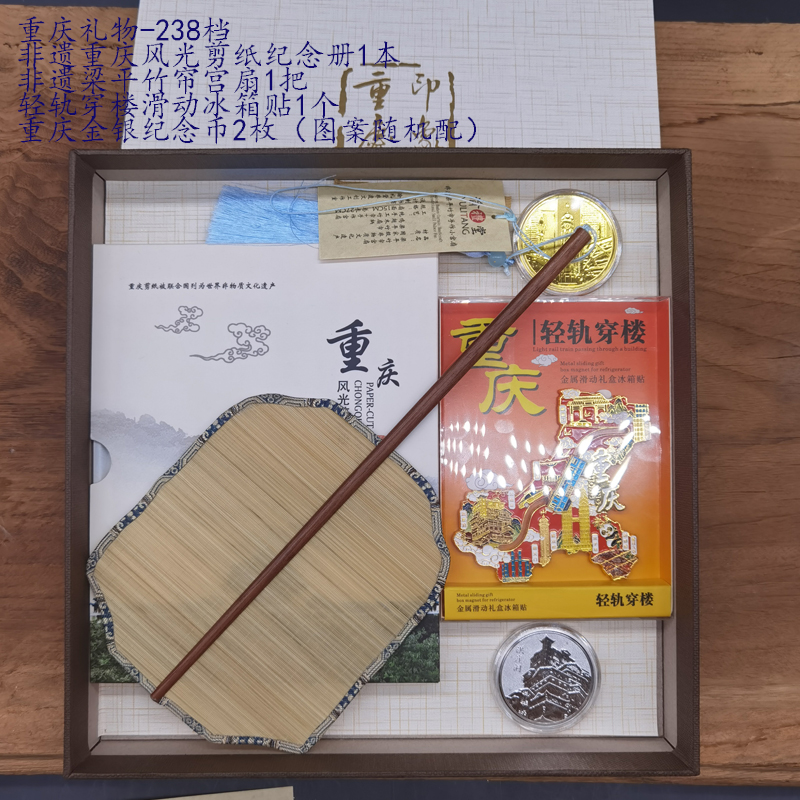 重庆礼物-238档
非遗重庆风光剪纸纪念册1本
非遗梁平竹帘宫扇1把
轻轨穿楼滑动冰箱贴1个
重庆金银纪念币2枚（图案随机配）
印
重
堂
LITANG
重庆剪纸被联合国列为世界非物质文化遗产
重庆
风光
PAPER-CUT
重庆
轻轨穿楼
Light rail train passing through a building
Metal sliding gift
box magnet for refrigerator
金属滑动礼盒冰箱贴
重庆
Metal sliding gift
box magnet for refrigerator
金属滑动礼盒冰箱贴
轻轨穿楼